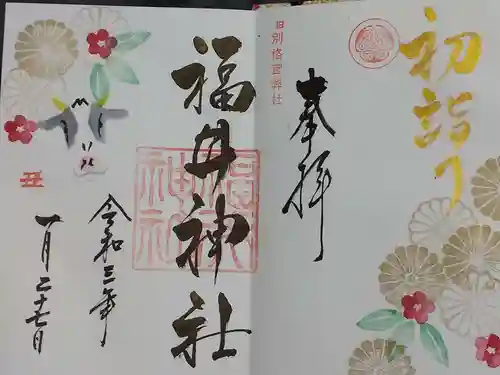 初詣り
旧別格官弊社
奉拝
福井神社
福井神社
令和三年
一月二十七日
丑